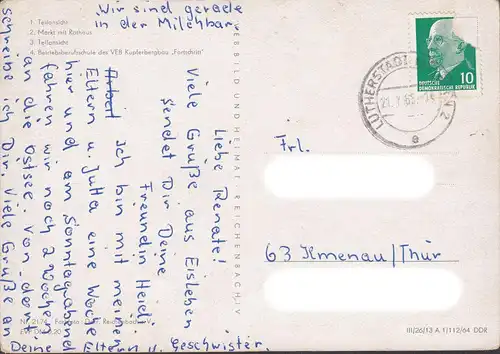 Wir sind gerade
in der Milchbar.
1. Teilansicht
2. Markt mit Rathaus
3. Teilansicht
4. Betriebsberufsschule des VEB Kupferbergbau „Fortschritt“
VERB BILD UND HEIMAT REICHENBACH I. V.
Liebe Renate!
Viele Grüße aus Eisleben
sendet Dir Deine
Freundin Heidi.
Ich bin mit meinen
Eltern u. Jutta eine Woche
hier und am Sonntagabend
fahren wir noch 2 Wochen
an die Ostsee. Von dort
schreibe ich Dir. Viele Grüße an
Deine Eltern u. Geschwister.
LUTHERSTADT
2
e
DEUTSCHE
DEMOKRATISCHE REPUBLIK
10
Frl.
63 Ilmenau/Thür
III/26/13 A 1/112/64 DDR